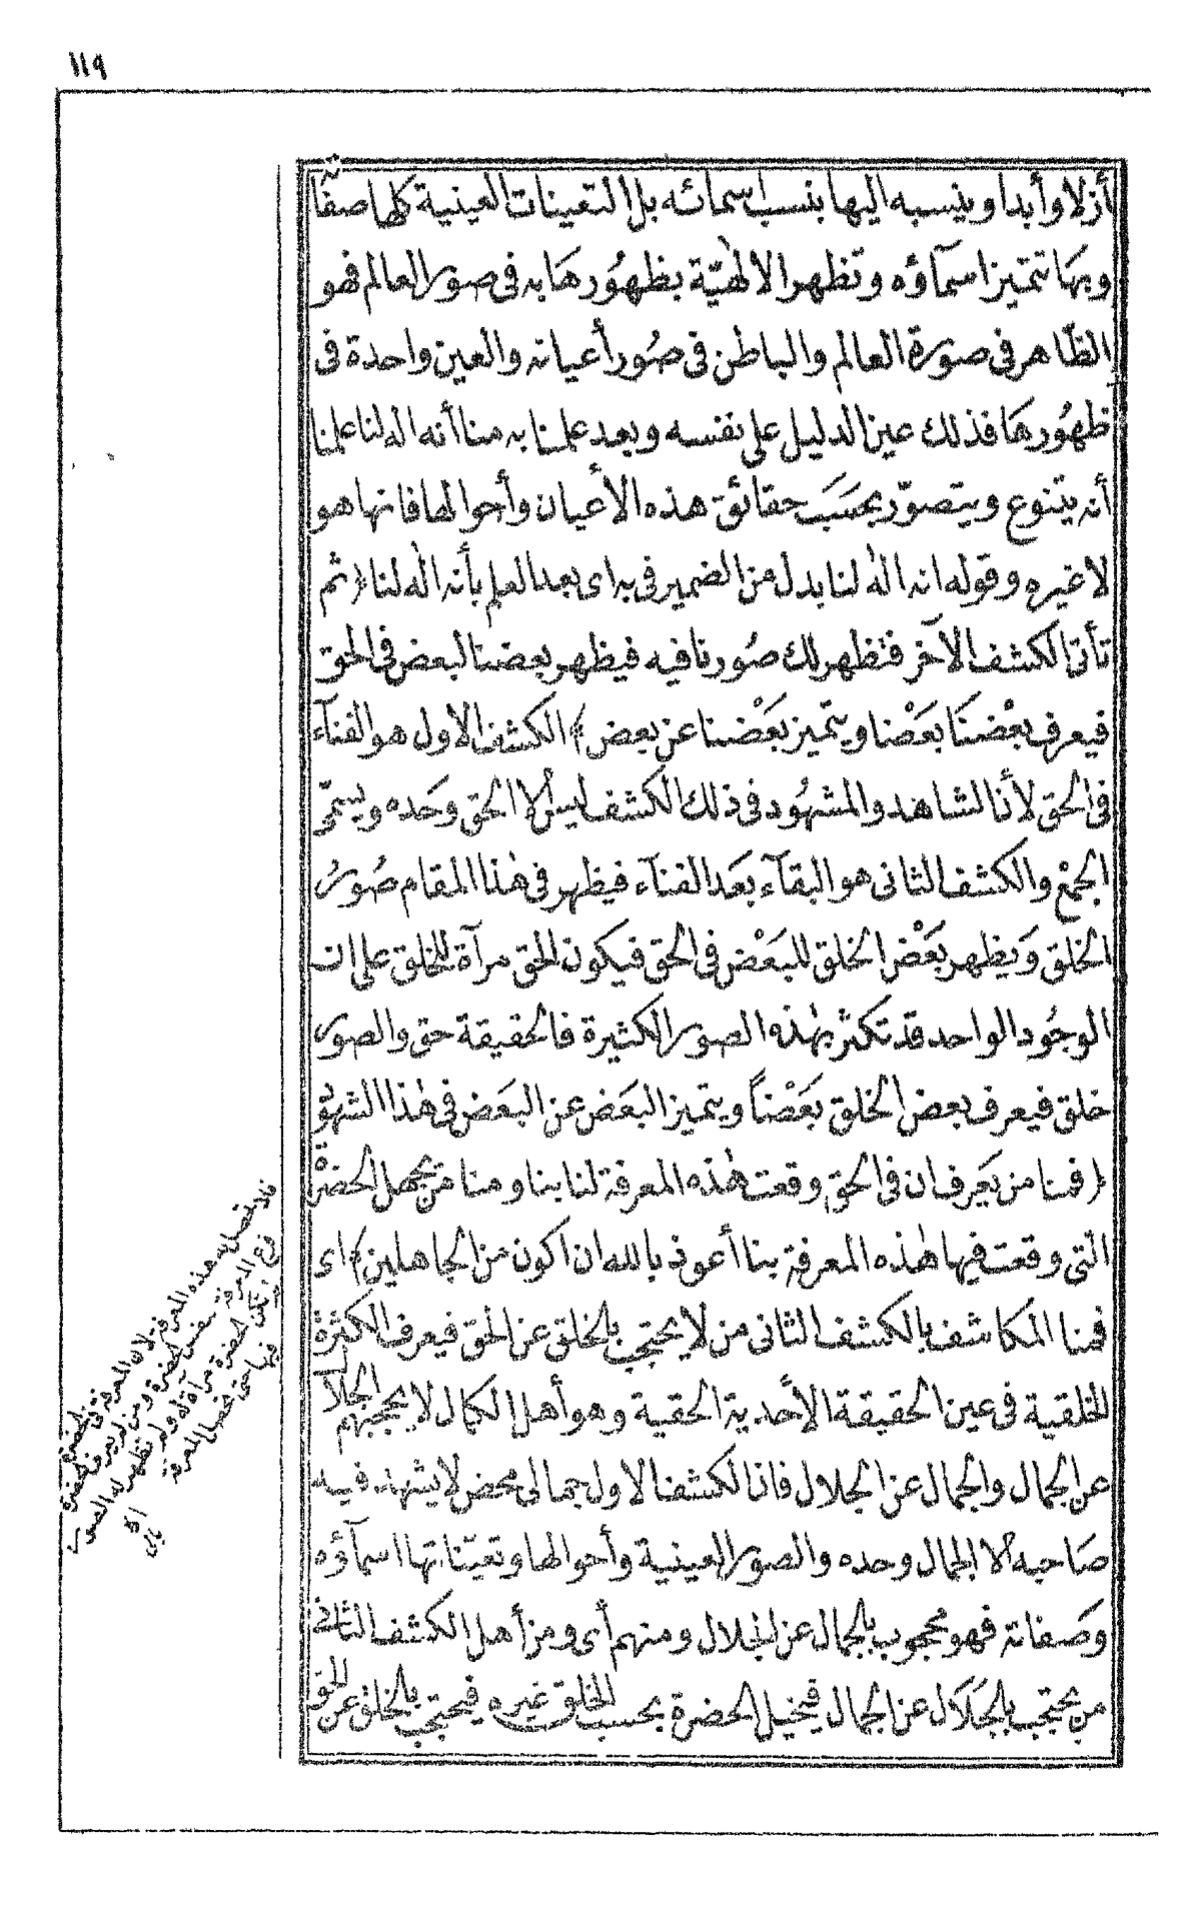 ١١٩
أزلا وأبدا وينسبه اليها بنسب أسمائه بل التعينات العينية كلها صفاته
وبها تتميز اسمآؤه وتظهر الالهيّة بظهُورهَا به فى صور العالم فهو
الظّاهر فى صورة العالم والباطن فى صُور أعيانه والعين واحدة فى
ظهُورهَا فذلك عين الدليل على نفسه وبعد علمنا به منا أنه اله لنا علمنا
أنه يتنوع ويتصوّر بحسَبَ حقائق هذه الأعيان وأحوالها فانها هو
لا غيره وقوله انه اله لنا بدل من الضمير فى به اى بعد العلم بأنه اله لنا ﴿ ثم
تأتى الكشف الآخر فتظهر لك صُورنا فيه فيظهر بعضنا لبعض فى الحق
فيعرف بعْضنَا بعَضْا ويتّميز بعَضْنا عن بعض ﴾ الكشف الاول هو الفنآء
فى الحق لأن الشاهد والمشهُود فى ذلك الكشف ليس الا الحق وحَده ويسمّى
الجمْع والكشف الثانى هو البقآء بعَد الفنآء فيظهر فى هذا المقام صُورُ
الخلق وَيظهر بعَضْ الخلق للبعَضْ فى الحق فيكون الحق مرآة للخلق على ان
الوجُود الواحد قد تكثر بهٰذه الصور الكثيرة فالحقيقة حق والصور
خلق فيعرف بعض الخلق بعَضْاً ويتميز البعَض عن البعَض فى هٰذا الشهود
﴿ فمنا من يَعرف ان فى الحق وقعت هٰذه المعرفة لنا بنا ومنا من يجهل الحضرْة
التى وقعت فيها هٰذه المعرفة بنا أعوذ بالله ان اكون من الجاهلين ﴾ اى
فمنا المكاشف بالكشف الثانى من لا يحتجب بالخلق عن الحق فيعرف الكثرة
الخلقية فى عين الحقيقة الأحدية الحقية وهو أهل الكمال لا يحجبهم الجلال
عن الجمال والجمال عن الجلال فان الكشف الاول جمالى محض لا يشهد فيه
صَاحبه الا الجمال وحده والصور العينية وأحوالها وتعيّناتها اسمآؤه
وَصَفاته فهو محجوب بالجمال عن الجلال ومنهم أى ومن أهل الكشف الثانى
من يحتجب بالجَلَال عن الجمال فيخيل الحضرة بحسب الخلق غيره فيحتجب بالخلق عن الحق